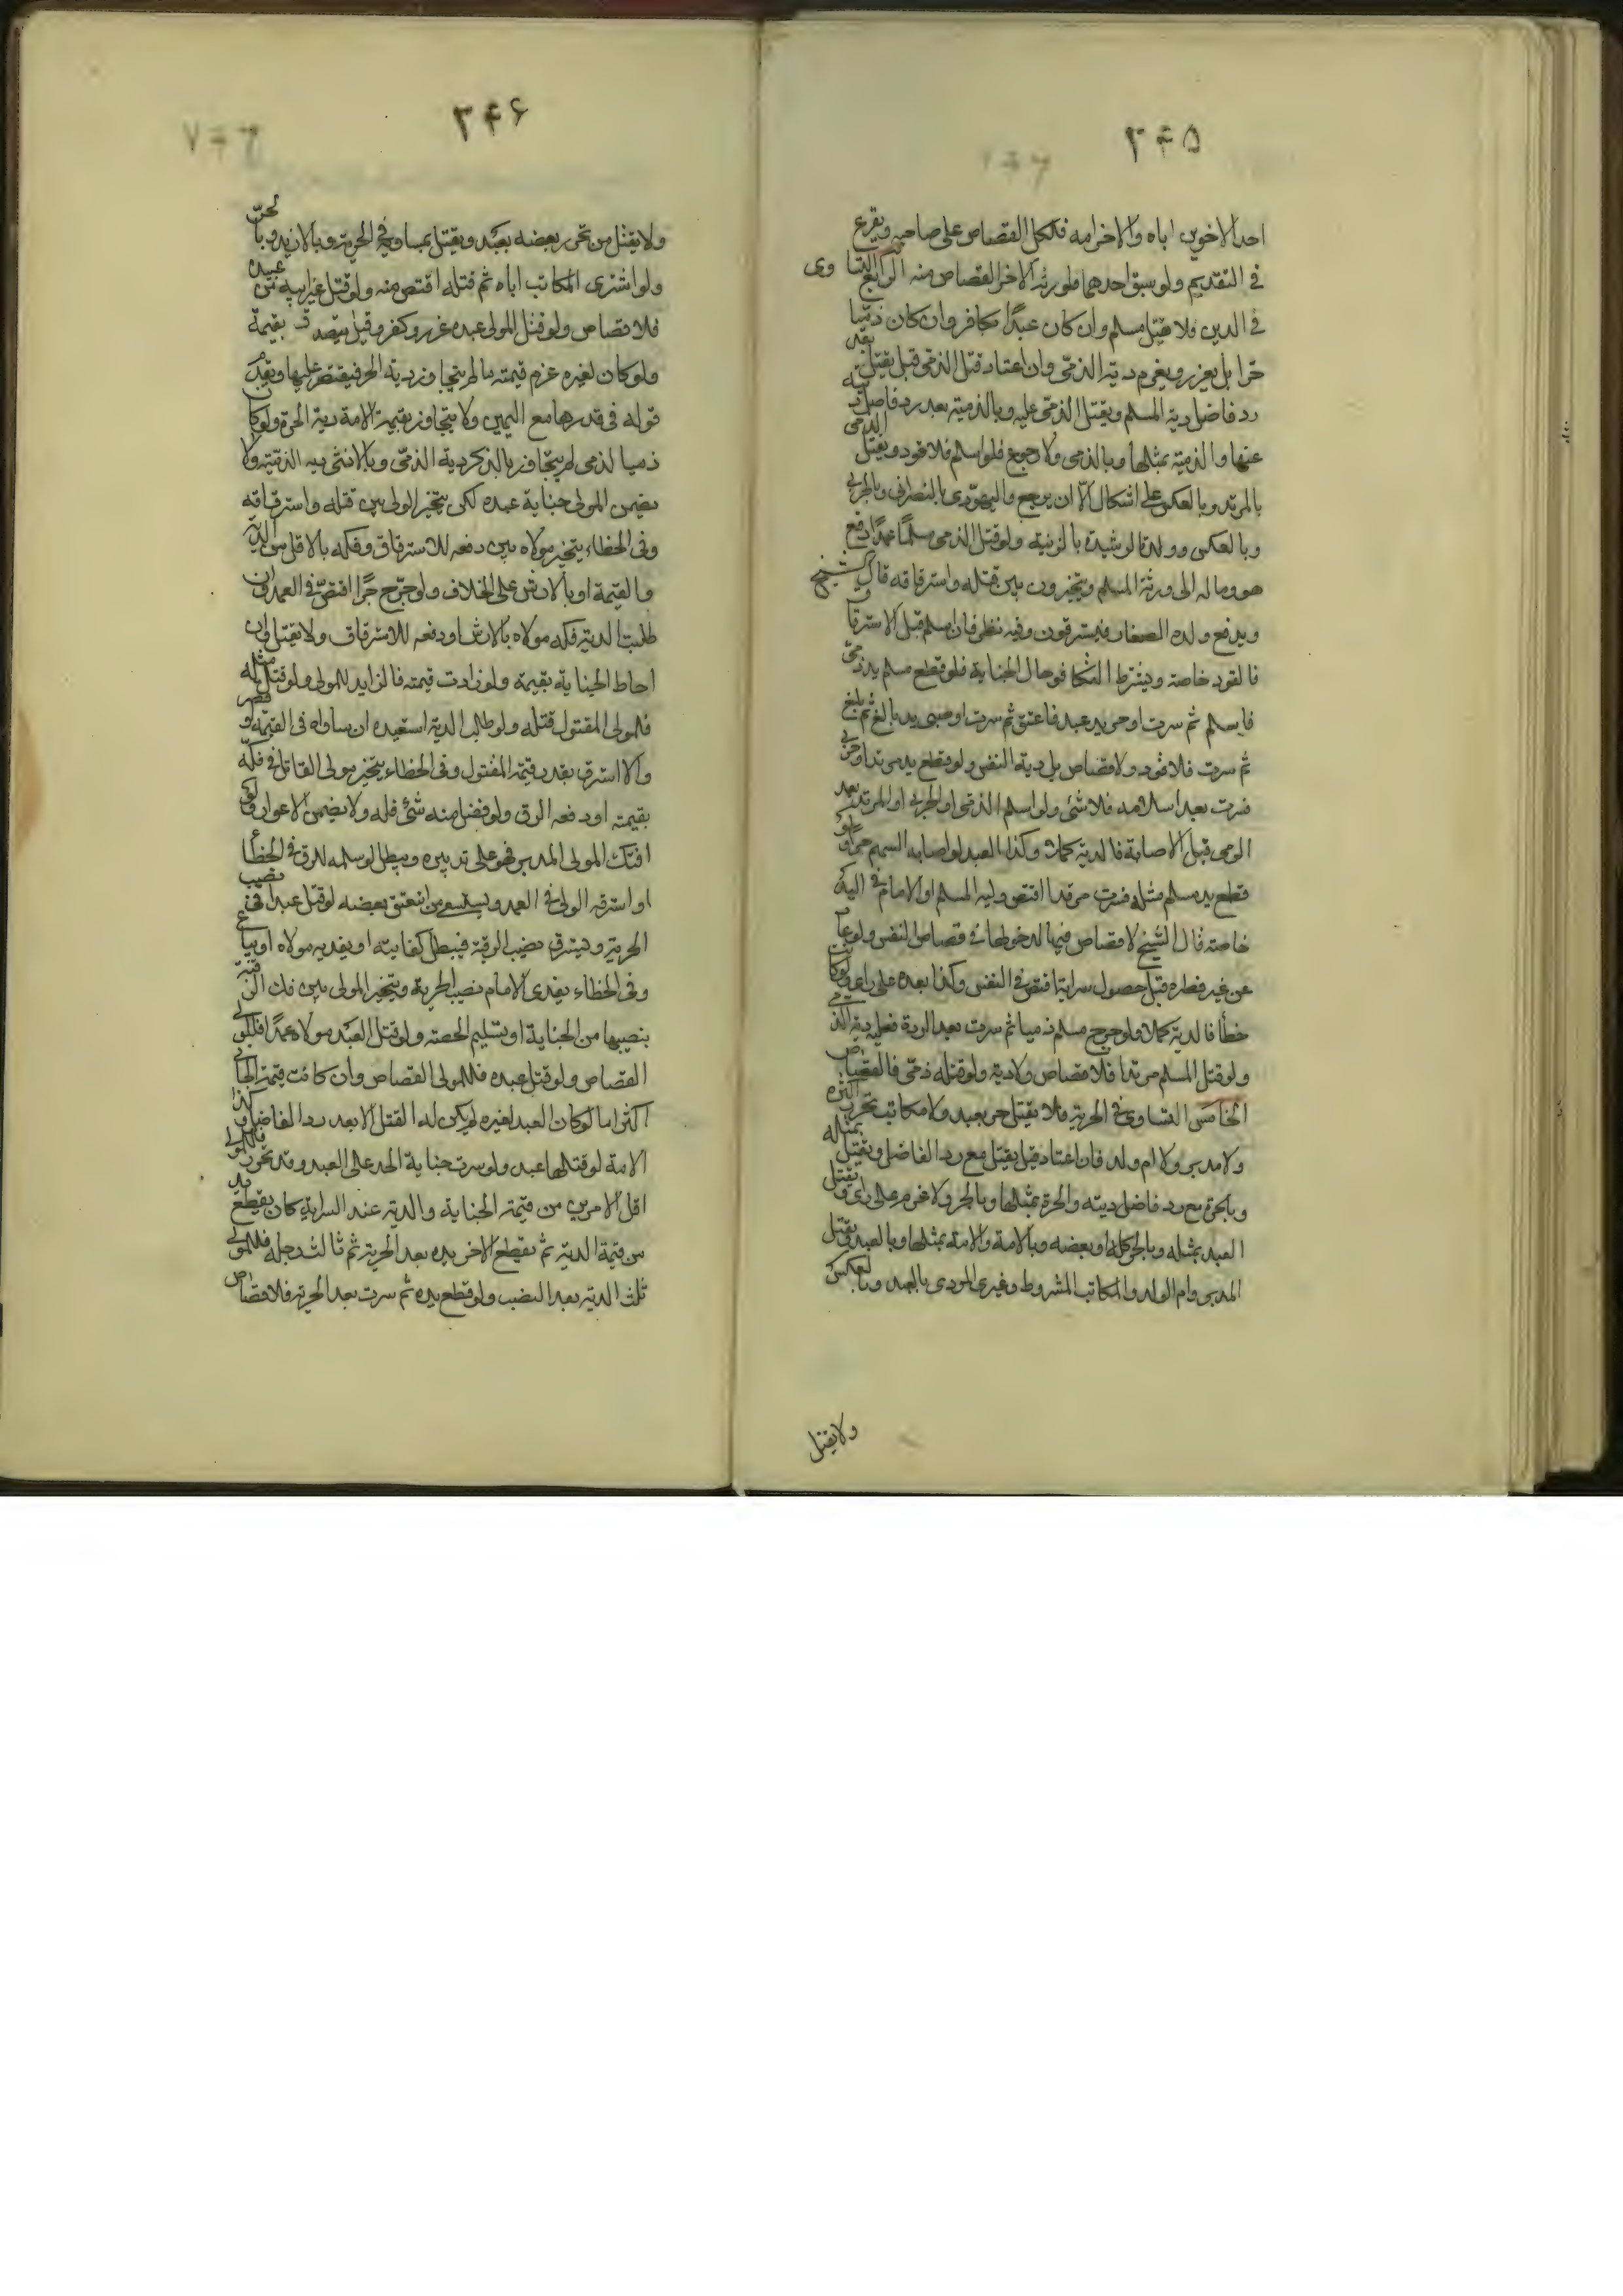 ۳۴۵
احد الاخوين اباه والاخر امه فلكل القصاص على صاحبه ويقرع
في التقديم ولو سبق احدهما فلورثة الاخر القصاص منه الرابع التساوى
في الدين فلا يقتل مسلم وان كان عبدًا بكافر وان كان ذميا
حرا بل يعزر ويغرم دية الذمى وان اعتاد قتل الذمى قيل يقتل بعد
رد فاضل دية المسلم ويقتل الذمى بمثله وبالذمية بعد رد فاضل ديته
عنها والذمية بمثلها وبالذمى ولا رجوع فلو اسلم فلا قود ويقتل الذمى
بالمرتد وبالعكس على اشكال الا ان يرجع واليهودى بالنصرانى وبالحربى
وبالعكس وولد الرشيدة بالزنية ولو قتل الذمى مسلمًا عمدًا دفع
هو وماله الى ورثة المسلم ويتخيرون بين قتله واسترقاقه قال الشيخ
ويدفع ولده الصغار فيسترقون وفيه نظر فان اسلم قبل الاسترقاق
فالقود خاصة ويشترط التكافو حال الجناية فلو قطع مسلم يد ذمى
فاسلم ثم سرت او حر يد عبد فاعتق ثم سرت او صبى يد بالغ ثم بلغ
ثم سرت فلا قود ولا قصاص بل دية النفس ولو قطع يد مرتد او حربى
فسرت بعد اسلامه فلا شئ ولو اسلم الذمى او الحربى او المرتد بعد
الرمى قبل الاصابة فالدية كملا وكذا العبد لو اصابه السهم حرًا ولو
قطع يد مسلم مثله فسرت مرتدا اقتص وليه المسلم او الامام في اليد
خاصة قال الشيخ لا قصاص فيها لدخولها في قصاص النفس ولو عاد
عن غير فطرة قبل حصول سراية اقتص في النفس وكذا بعده على راى ولو كانت
خطأ فالدية كملا ولو جرح مسلم ذميا ثم سرت بعد الردة فعليه دية الذمى
ولو قتل المسلم مرتدا فلا قصاص ولا دية ولو قتله ذمى فالقصاص
الخامس التساوى في الحرية فلا يقتل حر بعبد ولا مكاتب تحرر اكثره
ولا مدبر ولا ام ولد فان اعتاد قيل يقتل مع رد الفاضل ويقتل بمثله
وبالحرة مع رد فاضل ديته والحرة بمثلها وبالحر ولا غرم على راى ويقتل
العبد بمثله وبالحر كله او بعضه وبالامة والامة بمثلها وبالعبد ويقتل
المدبر وام الولد والمكاتب المشروط وغير المودى بالعبد وبالعكس
ولا يقتل
۳۴۶
ولا يقتل من تحرر بعضه بعبد ويقتل بمساويه في الحرية وبالازيد وبالحر
ولو اشترى المكاتب اباه ثم قتله اقتص منه ولو قتل غير ابيه من عبيده
فلا قصاص ولو قتل المولى عبده عزر وكفر وقيل يتصدق بقيمة
ولو كان لغيره غرم قيمته ما لم يتجاوز دية الحر فيقتصر عليها ويقدم
قوله في قدرها مع اليمين ولا يتجاوز بقيمة الامة دية الحرة ولو كان
ذميا لذمى لم يتجاوز بالذكر دية الذمى وبالانثى دية الذمية ولا
يضمن المولى جناية عبده لكن يتخير الولى بين قتله واسترقاقه
وفى الخطاء يتخير مولاه بين دفعه للاسترقاق وفكه بالاقل من الدية
والقيمة او بالارش على الخلاف ولو جرح حرًا اقتص في العمد وان
طلبت الدية فكه مولاه بالارش او دفعه للاسترقاق ولا يقتل وان
احاط الجناية بقيمة ولو زادت قيمته فالزايد للمولى ولو قتل مثله
فلمولى المقتول قتله ولو طلب الدية استعبده ان ساواه فى القيمة او قصر
والا استرق بقدر قيمة المقتول وفى الخطاء يتخير مولى القاتل في فكه
بقيمته او دفعه الرق ولو فضل منه شئ فله ولا يضمن الاعواز ولو
افتك المولى المدبر فهو على تدبيره ويبطل لو سلمه للرق في الخطأ
او استرقه الولى في العمد ويستسعى من انعتق بعضه لو قتل عبدا في نصيب
الحرية ويسترق نصيب الرقية فيبطل كتابته او يفديه مولاه او يباع
وفى الخطاء يفدى الامام نصيب الحرية ويتخير المولى بين فك الرقبة
بنصيبها من الجناية او تسليم الحصة ولو قتل العبد مولاه عمدًا فللولى
القصاص ولو قتل عبده فللمولى القصاص وان كانت قيمة الجانى
اكثر اما لو كان العبد لغيره لم يكن له القتل الا بعد رد الفاضل وكذا
الامة لو قتلها عبد ولو سرت جناية الحد على العبد وقد تحرر فللمولى
اقل الامرين من قيمة الجناية والدية عند السراية كان يقطع يد
من قيمة الدية ثم يقطع الاخر يده بعد الحرية ثم ثالث رجله فللمولى
ثلث الدية بعد النصب ولو قطع يده ثم سرت بعد الحرية فلا قصاص